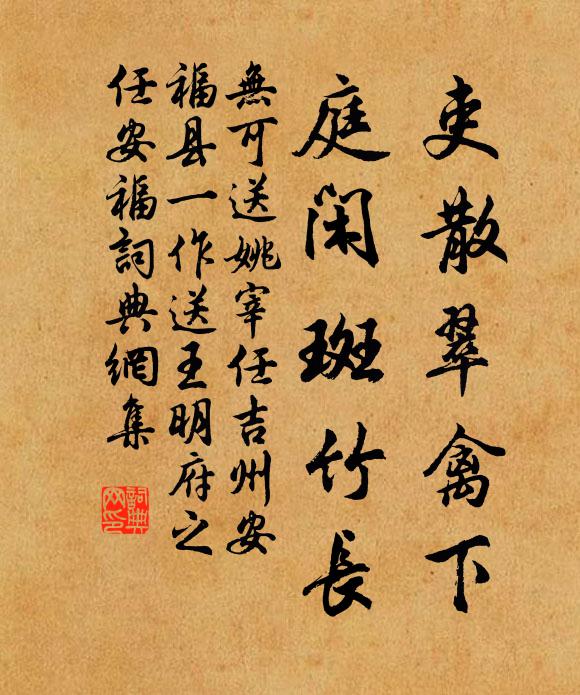 吏散翠禽下
庭閑斑竹長
無可送姚宰任吉州安
福县一作送王明府之
任安福詞典網集
詞典
网印